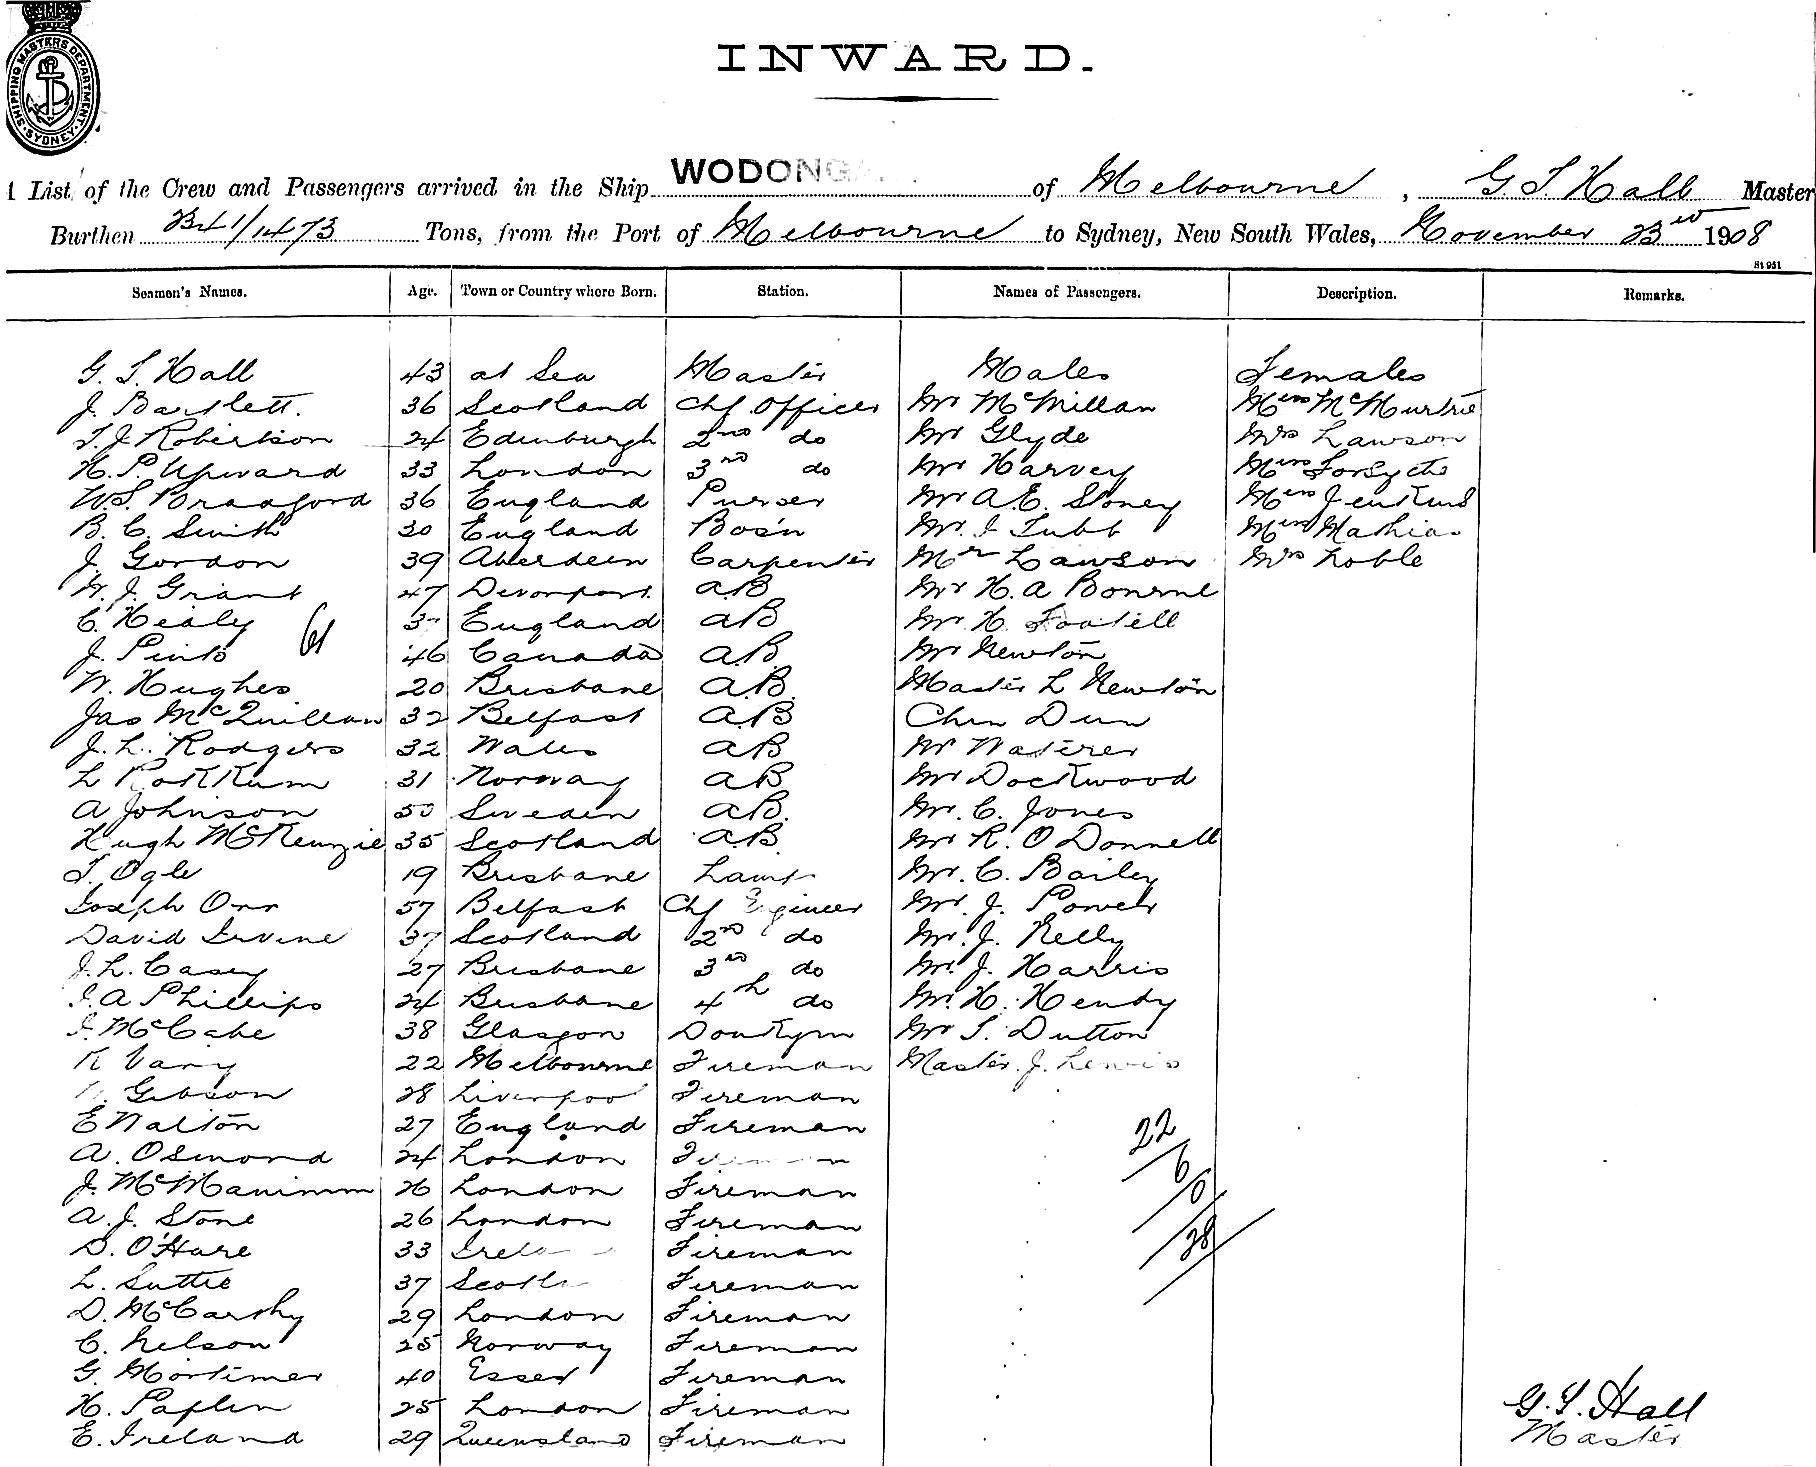 SHIPPING MASTERS DEPARTMENT · SYDNEY ·
INWARD.
List of the Crew and Passengers arrived in the Ship WODONGA of Melbourne, G. S. Hall Master
Burthen 1473 Tons, from the Port of Melbourne to Sydney, New South Wales, November 23rd 1908
Seamen's Names. Age. Town or Country where Born. Station. Names of Passengers. Description. Remarks.
G. S. Hall 43 at Sea Master Males Females
J. Bartlett. 36 Scotland Chf Officer Mr McMillan Miss McMurtrie
T. J. Robertson 24 Edinburgh 2nd do Mr Glyde Mrs Lawson
H. P. Upward 33 London 3rd do Mr Harvey Miss Forsyth
W. S. Bradford 36 England Purser Mr A. E. Stoney Miss Jenkins
B. C. Smith 30 England Bos'n Mr. J Tubb Miss Mathias
J. Gordon 39 Aberdeen Carpenter Mr Lawson Mrs Noble
W. J. Grant 47 Devonport. A.B Mr H. A Bourne
C. Healy England A.B Mr H. Footell
J. Pinto 46 Canada A.B Mr Newton
W. Hughes 20 Brisbane A.B. Master L Newton
Jas McQuillan 32 Belfast A.B Chin Dun
J. L. Rodgers 32 Wales A.B Mr Waterer
L Rokkum 31 Norway A.B Mr Dockwood
A Johnson 50 Sweden A.B. Mr. C. Jones
Hugh McKenzie 35 Scotland A.B. Mr R. O Donnell
T. Ogle 19 Brisbane Lamp Mr. C. Bailey
Joseph Orr 57 Belfast Chf Engineer Mr. J. Power
David Irvine 37 Scotland 2nd do Mr. J. Kelly
J. L. Casey 27 Brisbane 3rd do Mr. J. Harris
J. A Phillips 24 Brisbane 4th do Mr. H. Hendy
J. McCabe 38 Glasgow Donkymn Mr S. Dutton
K Vary 22 Melbourne Fireman Master. J. Lewis
Gibson 28 Liverpool Fireman
E Walton 27 England Fireman 22
A. Osmond 24 London Fireman 6
J. McManimm 26 London Fireman 0
A. J. Stone 26 London Fireman 28
D. O'Hare 33 Irela Fireman
L. Suttie 37 Scotl Fireman
D. McCarthy 29 London Fireman
C. Nelson 25 Norway Fireman
G. Mortimer 40 Essex Fireman
H. Paplin 25 London Fireman G. S. Hall
E. Ireland 29 Queensland Fireman Master